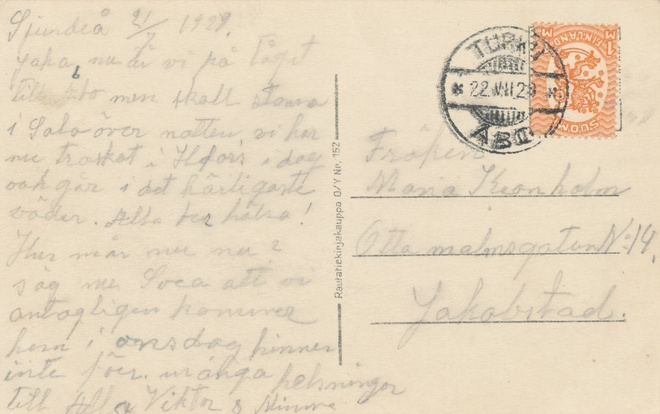 Sjundeå 21/7 1929.
Jaha nu är vi på tåget
till Åbo men skall stanna
i Salo över natten vi har
nu traskat i H:fors i dag
och går i det härligaste
väder. Alla ber hälsa!
Hur mår nu
säg nu att vi
antagligen kommer
hem i onsdag hinner
inte förr. många hälsningar
till Alla Viktor &
TURKU
22.VII.29
ÅBO
1 M
FINLAND
SUOMI
Rautatiekirjakauppa O/Y Nr. 152
Fröken
Maria Kronholm
Otto malmsgatan N:14.
Jakobstad.